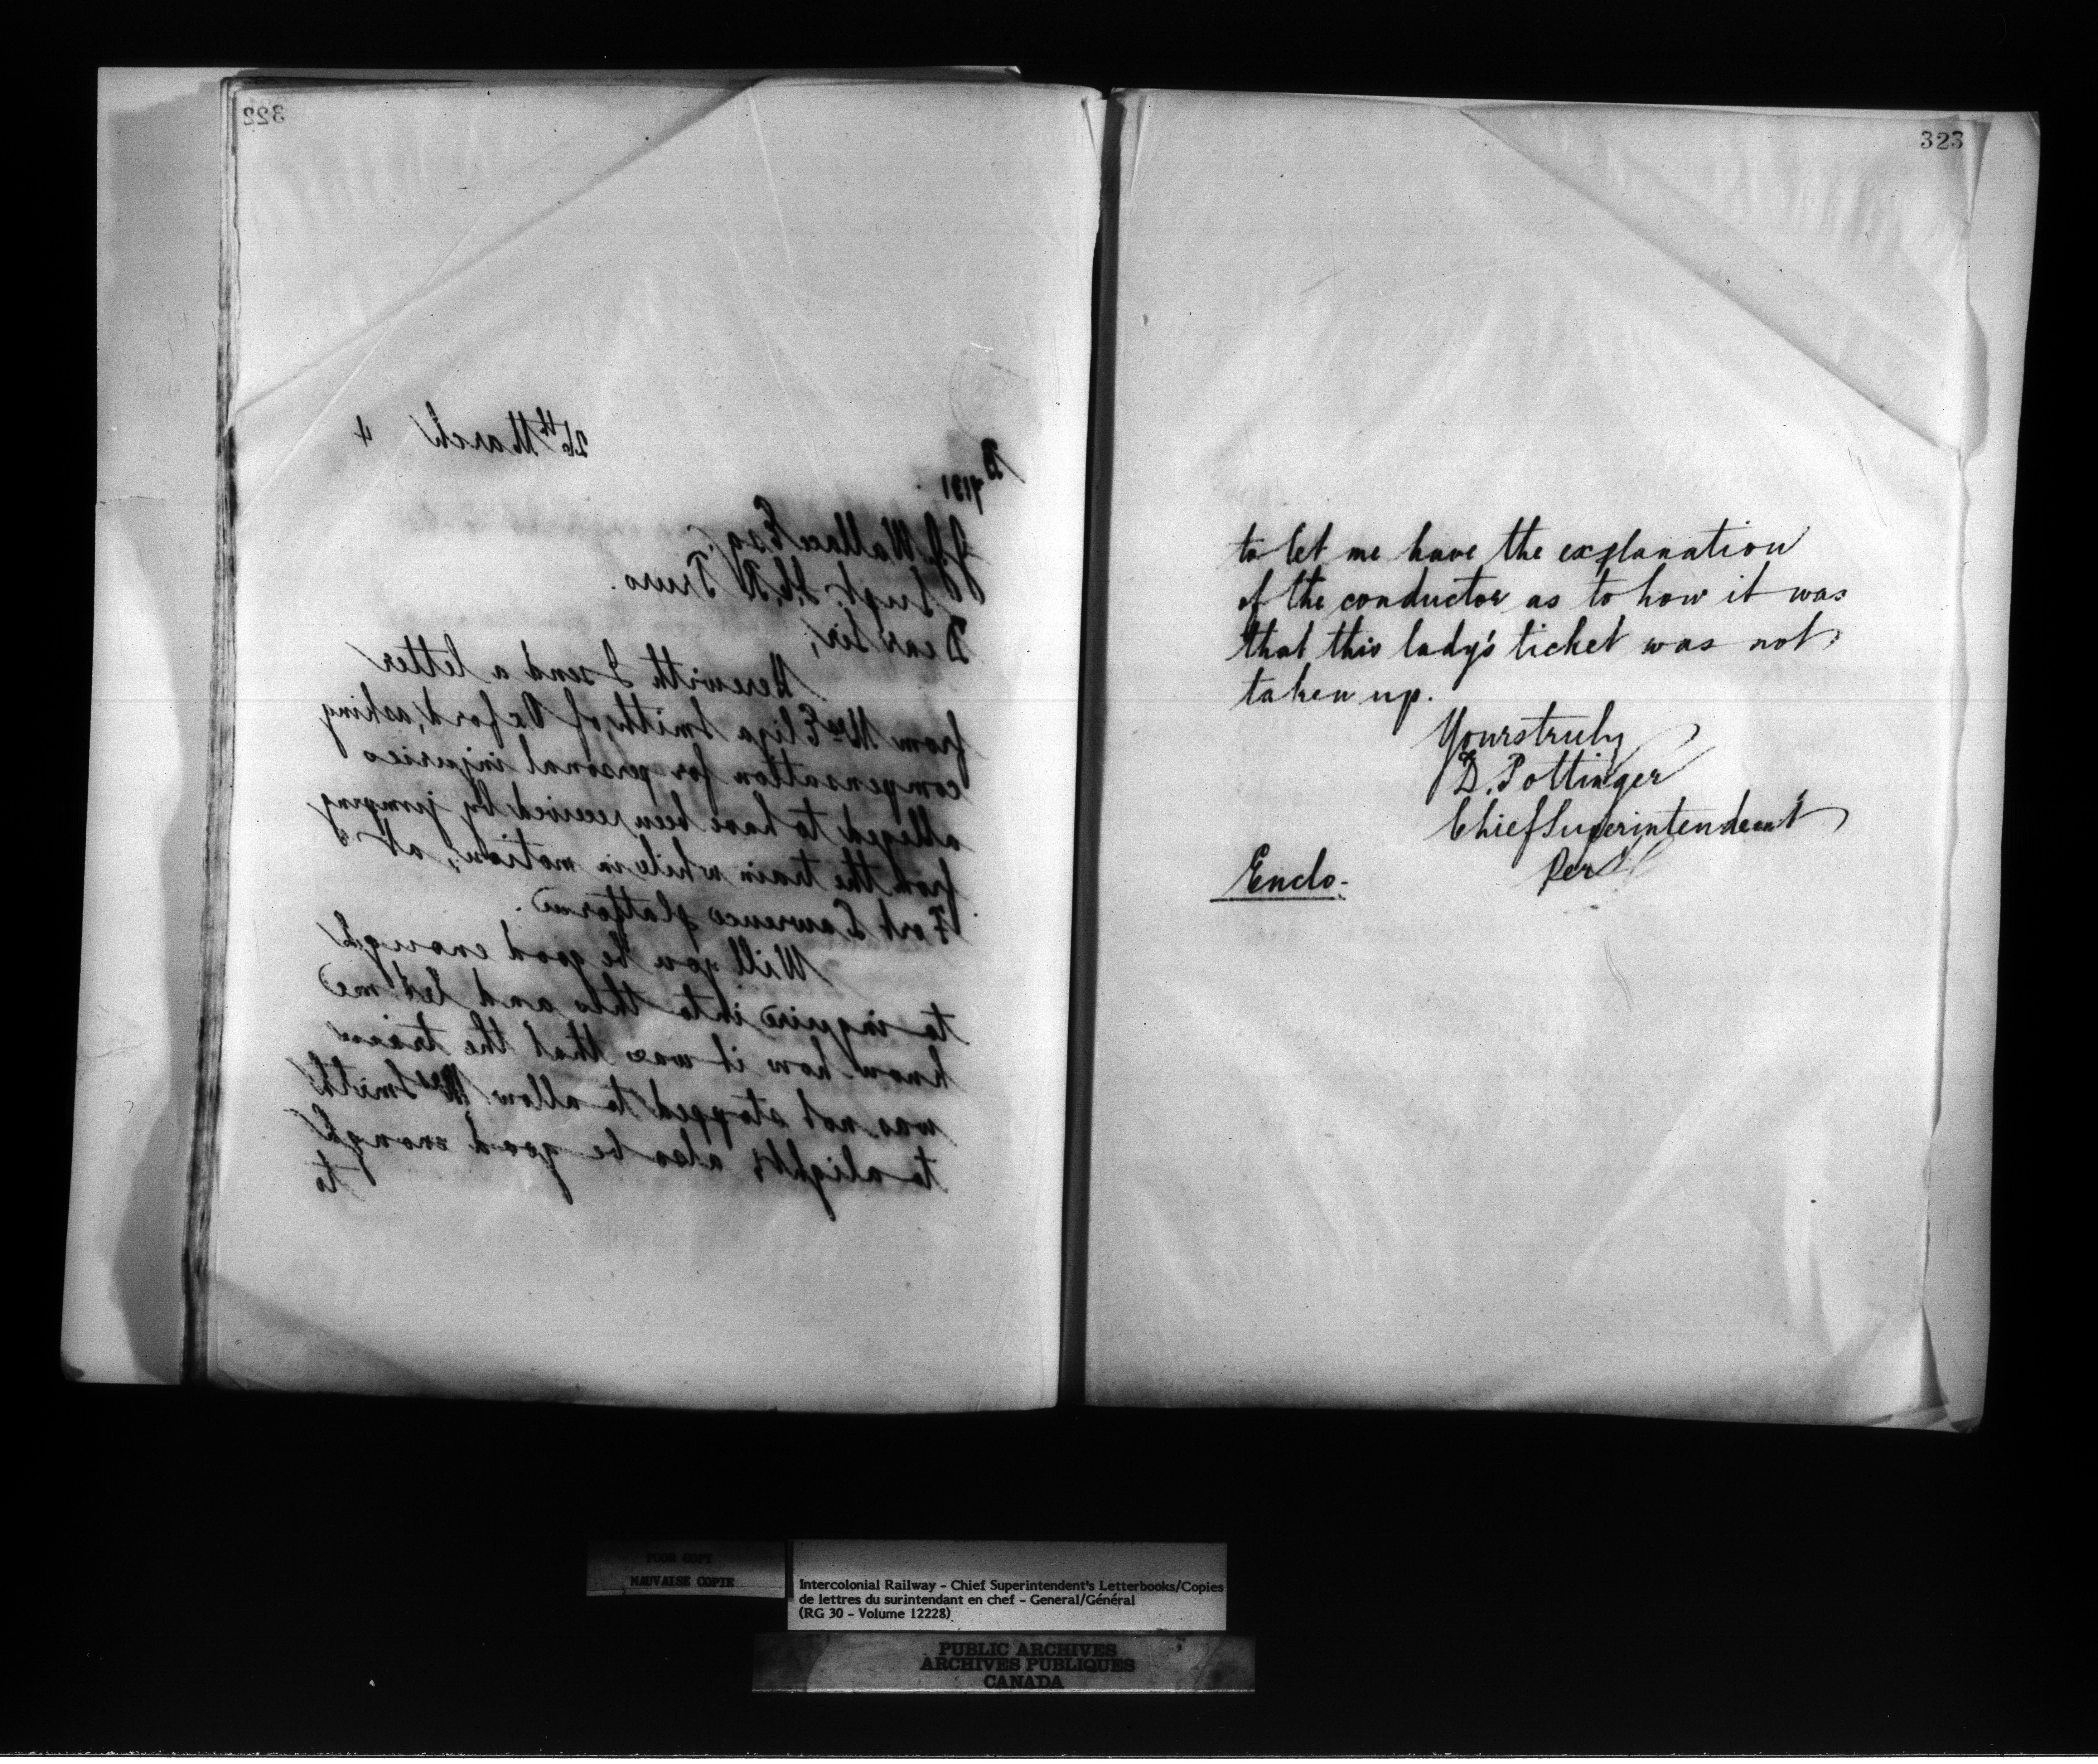 322
26th March 4
J.J. Wallace Esq.
Supt. I.C.R Truro.
Dear Sir,
Herewith I send a letter
from Mrs Eliza Smith, of Oxford, asking
compensation for personal injuries
alleged to have been received by jumping
from the train while in motion, at
Fort Lawrence platform.
Will you be good enough
to inquire into this and let me
know how it was that the train
was not stopped to allow Mrs Smith
to alight, also be good enough
to
323
to let me have the explanation
of the conductor as to how it was
that this lady's ticket was not
taken up.
Yours truly
D. Pottinger
Chief Superintendent
Per
Enclo.
POOR COPY
MAUVAISE COPIE
Intercolonial Railway - Chief Superintendent's Letterbooks/Copies
de lettres du surintendant en chef - General/Général
(RG 30 - Volume 12228)
PUBLIC ARCHIVES
ARCHIVES PUBLIQUES
CANADA